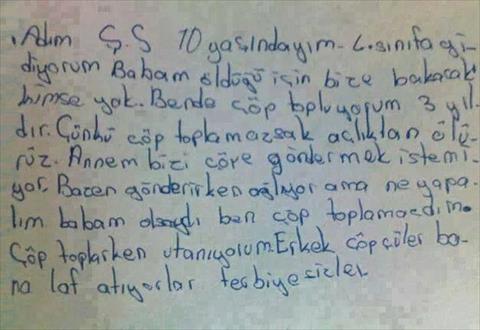 . Adım Ş.S 10 yaşındayım. 4. sınıfa gi-
diyorum Babam öldüğü için bize bakacak
kimse yok. Bende çöp topluyorum 3 yıl-
dır. Çünkü çöp toplamazsak açlıktan ölü-
rüz. Annem bizi çöpe göndermek istemi-
yor. Bazen gönderirken ağlıyor ama ne yapa-
lım babam olsaydı ben çöp toplamazdım.
Çöp toplarken utanıyorum. Erkek çöpçüler ba-
na laf atıyorlar terbiyesizler